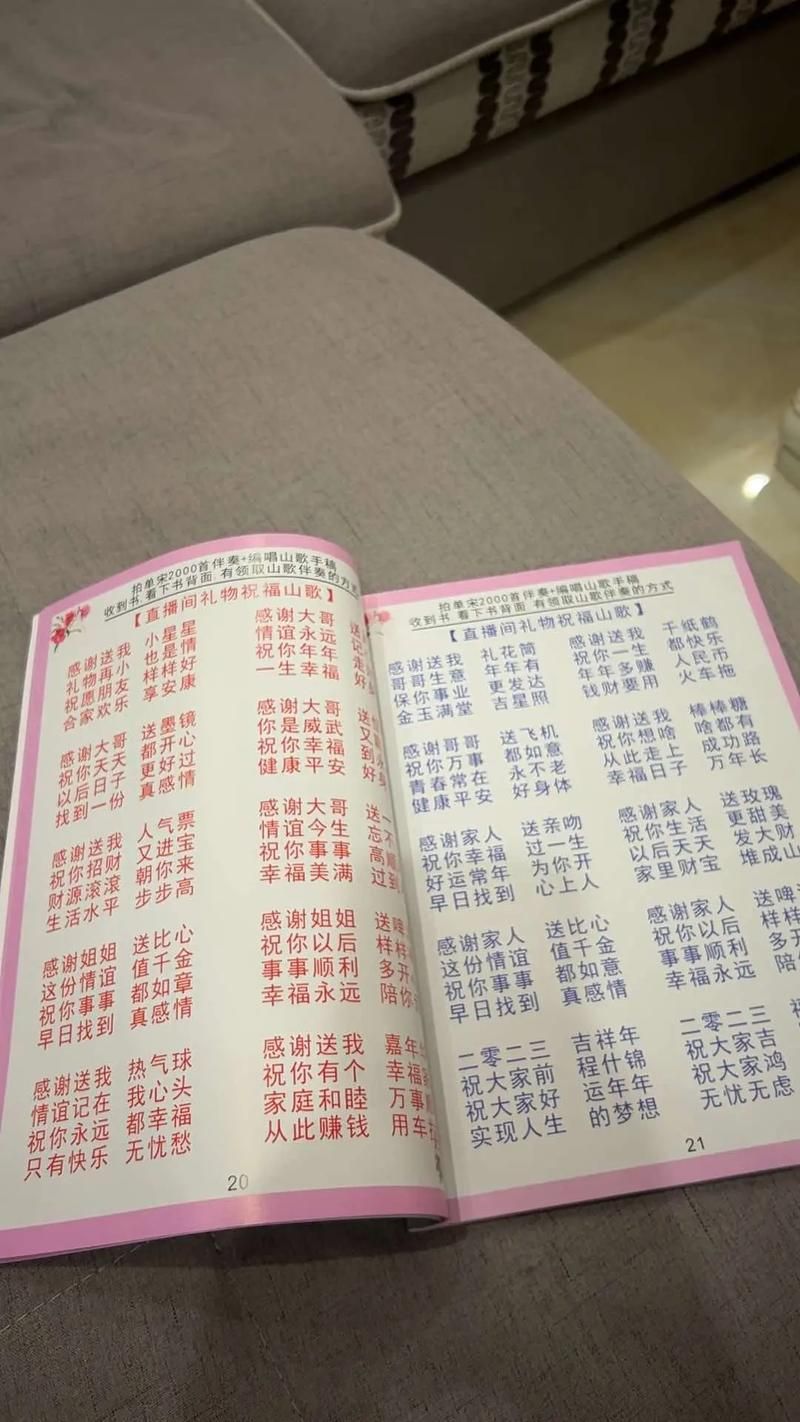 拍单宋2000首伴奏+编唱山歌手稿
收到书 看下书背面 有领取山歌伴奏的方式
【直播间礼物祝福山歌】
感谢送我 小星星
礼物再小 也是情
祝愿朋友 样样好
合家欢乐 享安康
感谢大哥 送墨镜
祝你天天 都开心
以后天天 更好过
找到一份 真感情
感谢送我 人气票
祝你招财 又进宝
财源滚滚 朝你来
生活水平 步步高
感谢姐姐 送比心
这份情谊 值千金
祝你事事 都如章
早日找到 真感情
感谢送我 热气球
情谊记在 我心头
祝你永远 都幸福
只有快乐 无忧愁
感谢大哥 送
情谊永远 记
祝你年年 走
一生幸福 好
感谢大哥 送
你是威武 又
祝你幸福 到
健康平安 好
感谢大哥 送一
情谊今生 忘不
祝你事事 高
幸福美满 过到
感谢姐姐 送啤
祝你以后 样样
事事顺利 多开
幸福永远 陪你
感谢送我 嘉年
祝你有个 幸福
家庭和睦 万事
从此赚钱 用车
20
拍单宋2000首伴奏+编唱山歌手稿
收到书 看下书背面 有领取山歌伴奏的方式
【直播间礼物祝福山歌】
感谢送我 礼花筒
哥哥生意 年年有
保你事业 更发达
金玉满堂 吉星照
感谢哥哥 送飞机
祝你万事 都如意
青春常在 永不老
健康平安 好身体
感谢家人 送亲吻
祝你幸福 过一生
好运常年 为你开
早日找到 心上人
感谢家人 送比心
这份情谊 值千金
祝你事事 都如意
早日找到 真感情
二零二三 吉祥年
祝大家前 程什锦
祝大家好 运年年
实现人生 的梦想
感谢送我 千纸鹤
祝你一生 都快乐
年年多赚 人民币
钱财要用 火车拖
感谢送我 棒棒糖
祝你想啥 啥都有
从此走上 成功路
幸福日子 万年长
感谢家人 送玫瑰
祝你生活 更甜美
以后天天 发大财
家里财宝 堆成山
感谢家人 送啤
祝你以后 样样
事事顺利 多开
幸福永远 陪你
二零二三
祝大家吉
祝大家鸿
无忧无虑
21